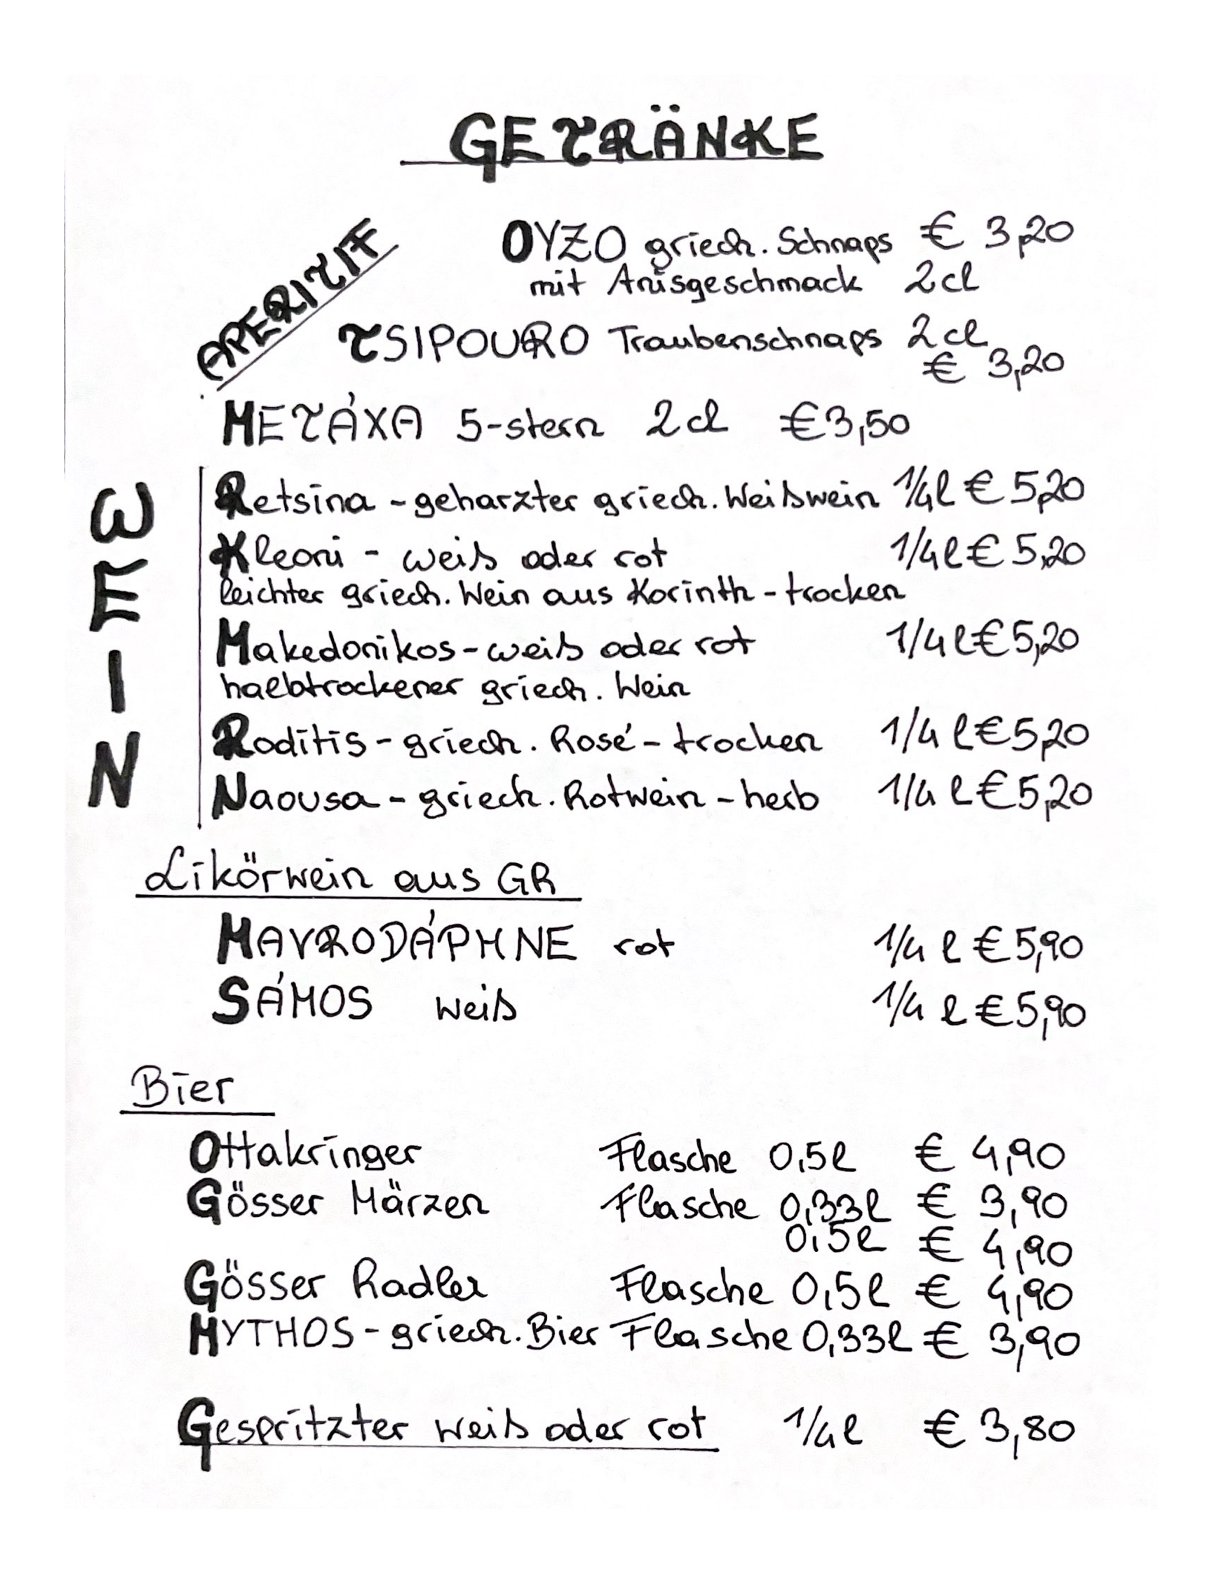 GETRÄNKE
APERITIF
OYZO griech. Schnaps € 3,20
mit Anisgeschmack 2cl
TSIPOURO Traubenschnaps 2cl
€ 3,20
METÁXA 5-stern 2cl €3,50
WEIN
Retsina - geharzter griech. Weißwein 1/4l € 5,20
Kleoni - weiß oder rot 1/4l € 5,20
leichter griech. Wein aus Korinth - trocken
Makedonikos - weiß oder rot 1/4l € 5,20
halbtrockener griech. Wein
Roditis - griech. Rosé - trocken 1/4 l € 5,20
Naousa - griech. Rotwein - herb 1/4 l € 5,20
Likörwein aus GR
MAVRODÁPHNE rot 1/4 l € 5,90
SÁMOS weiß 1/4 l € 5,90
Bier
Ottakringer Flasche 0,5l € 4,90
Gösser Märzen Flasche 0,33l € 3,90
0,5l € 4,90
Gösser Radler Flasche 0,5l € 4,90
MYTHOS - griech. Bier Flasche 0,33l € 3,90
Gespritzter weiß oder rot 1/4l € 3,80